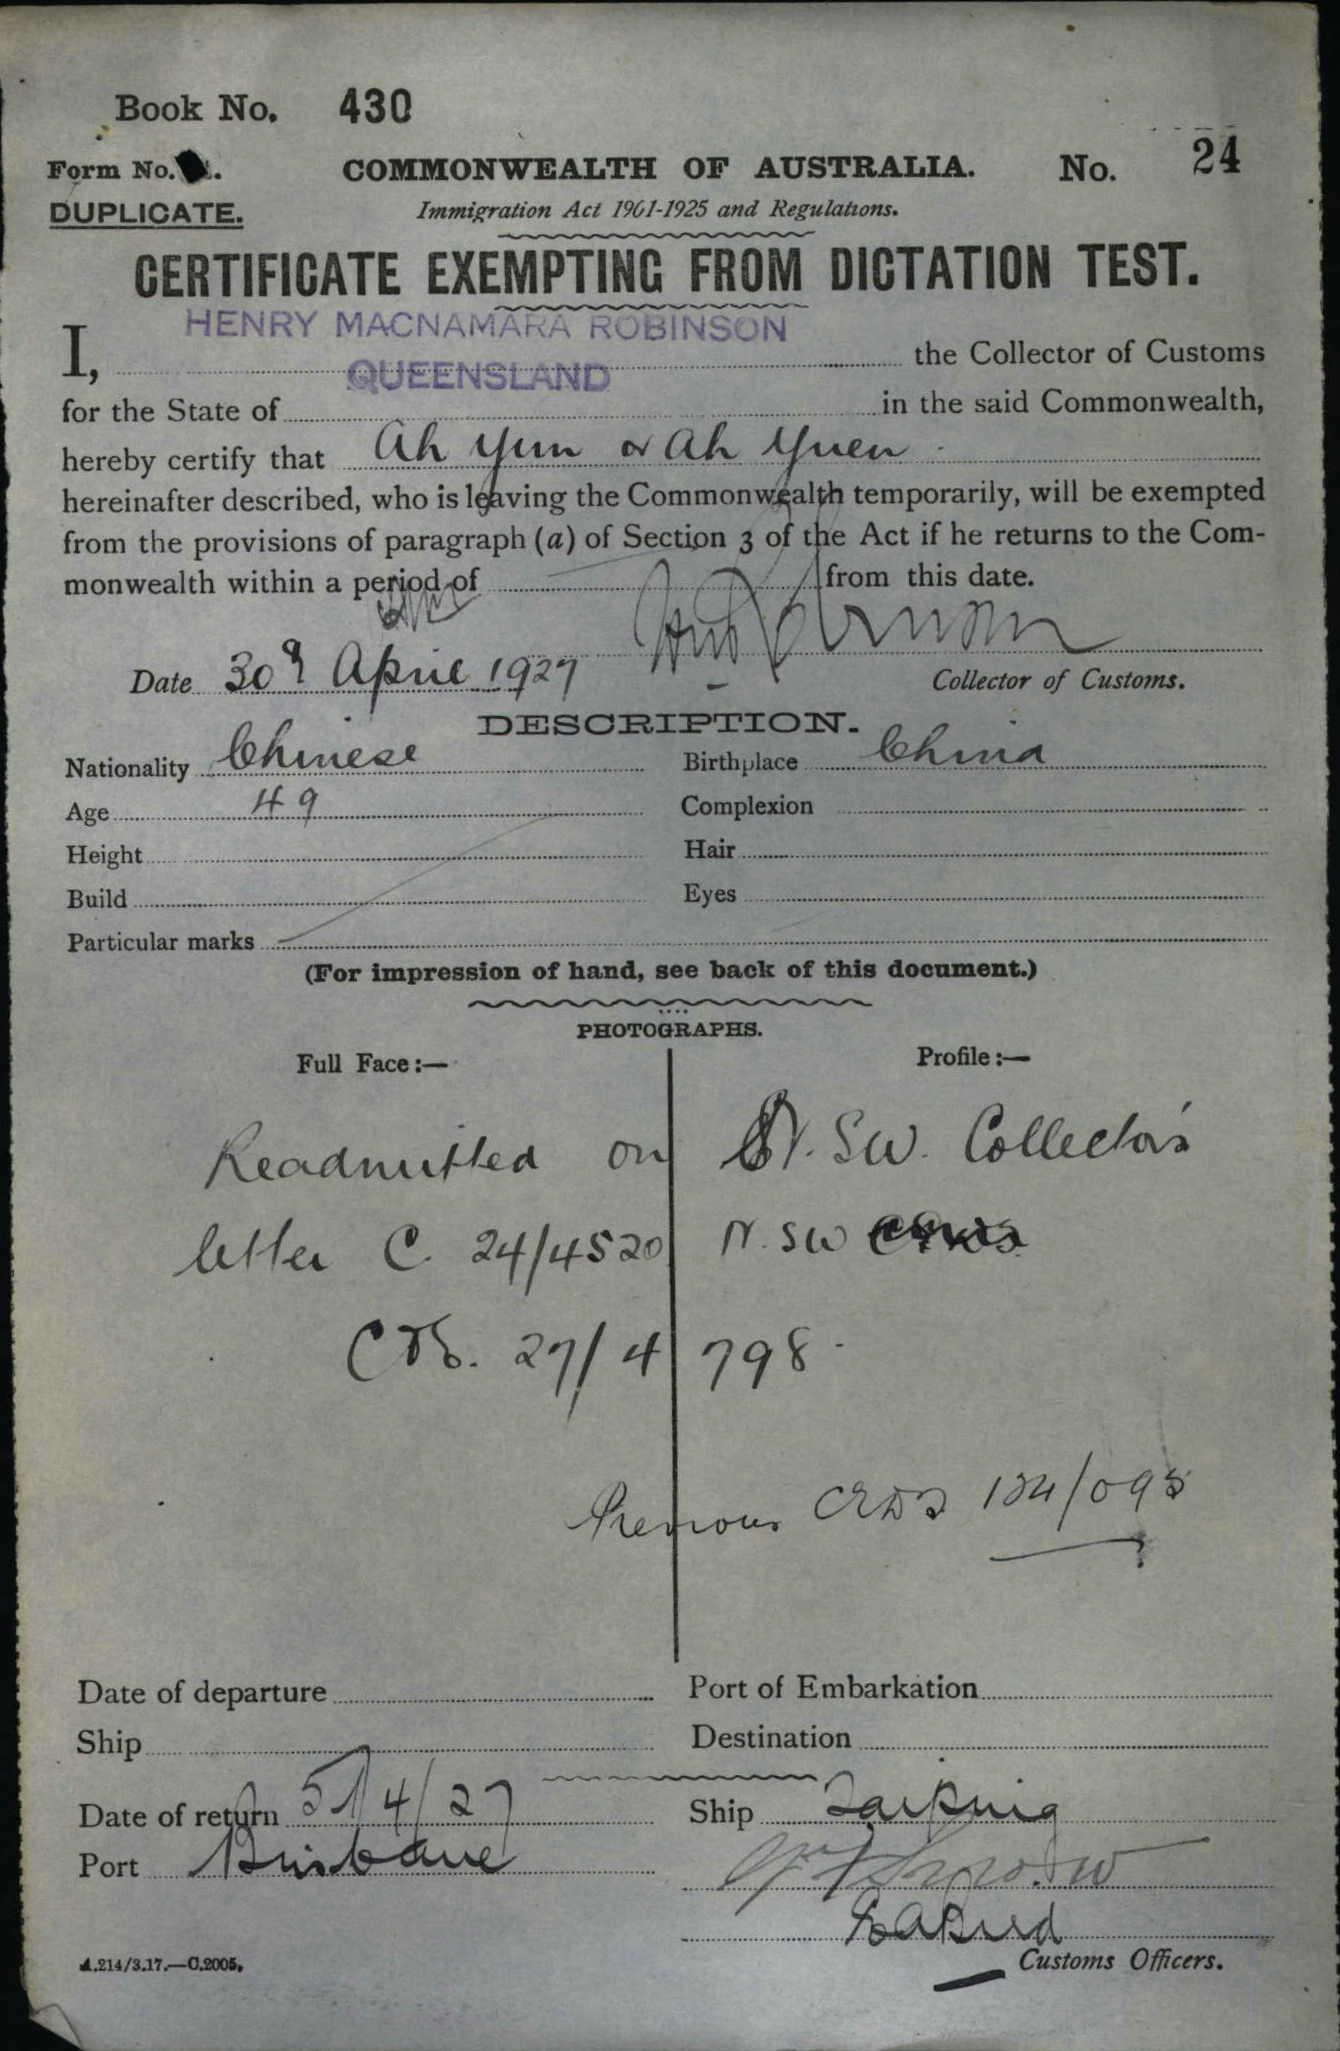 Book No. 430
Form No.
COMMONWEALTH OF AUSTRALIA.
No. 24
DUPLICATE.
Immigration Act 1901-1925 and Regulations.
CERTIFICATE EXEMPTING FROM DICTATION TEST.
HENRY MACNAMARA ROBINSON
I, the Collector of Customs
QUEENSLAND
for the State of in the said Commonwealth,
hereby certify that Ah Yun or Ah Yuen
hereinafter described, who is leaving the Commonwealth temporarily, will be exempted
from the provisions of paragraph (a) of Section 3 of the Act if he returns to the Com-
monwealth within a period of from this date.
Date 30th April 1927
Collector of Customs.
DESCRIPTION.
Nationality Chinese Birthplace China
Age 49 Complexion
Height Hair
Build Eyes
Particular marks
(For impression of hand, see back of this document.)
PHOTOGRAPHS.
Full Face:— Profile:—
Readmitted on N.SW. Collector's
letter C. 24/4520 N.SW
27/4798
Previous CEDT 124/095
Date of departure Port of Embarkation
Ship Destination
Date of return 4/27 Ship Taiping
Port Brisbane
A.214/3.17.—C.2005.
Customs Officers.